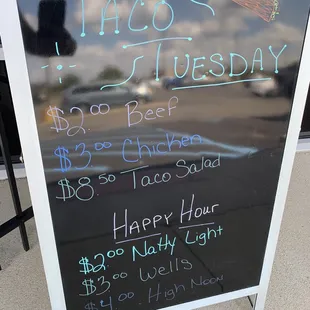 TACO
TUESDAY
$2.00 Beef
$3.00 Chicken
$8.50 Taco Salad
Happy Hour
$2.00 Natty Light
$3.00 Wells
$4.00 High Noon